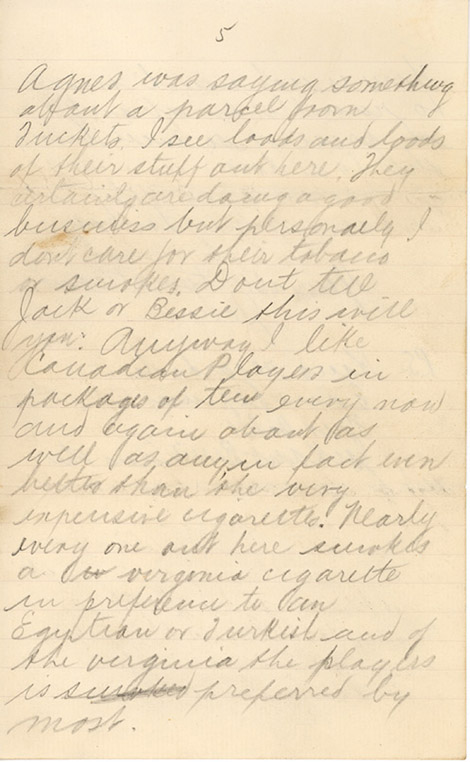 5
Agnes was saying something
about a parcel from
Tuckets. I see loads and loads
of their stuff out here. They
certainly are doing a good
business but personally I
don't care for their tobacco
or smokes. Dont tell
Jack or Bessie this will
you. Anyway I like
Canadian Players in
packages of ten every now
and again about as
well as any in fact even
better than the very
expensive cigarettes. Nearly
every one out here smokes
a virginia cigarette
in preference to an
Egyptian or Turkish and of
the virginia the players
is smoked preferred by
most.